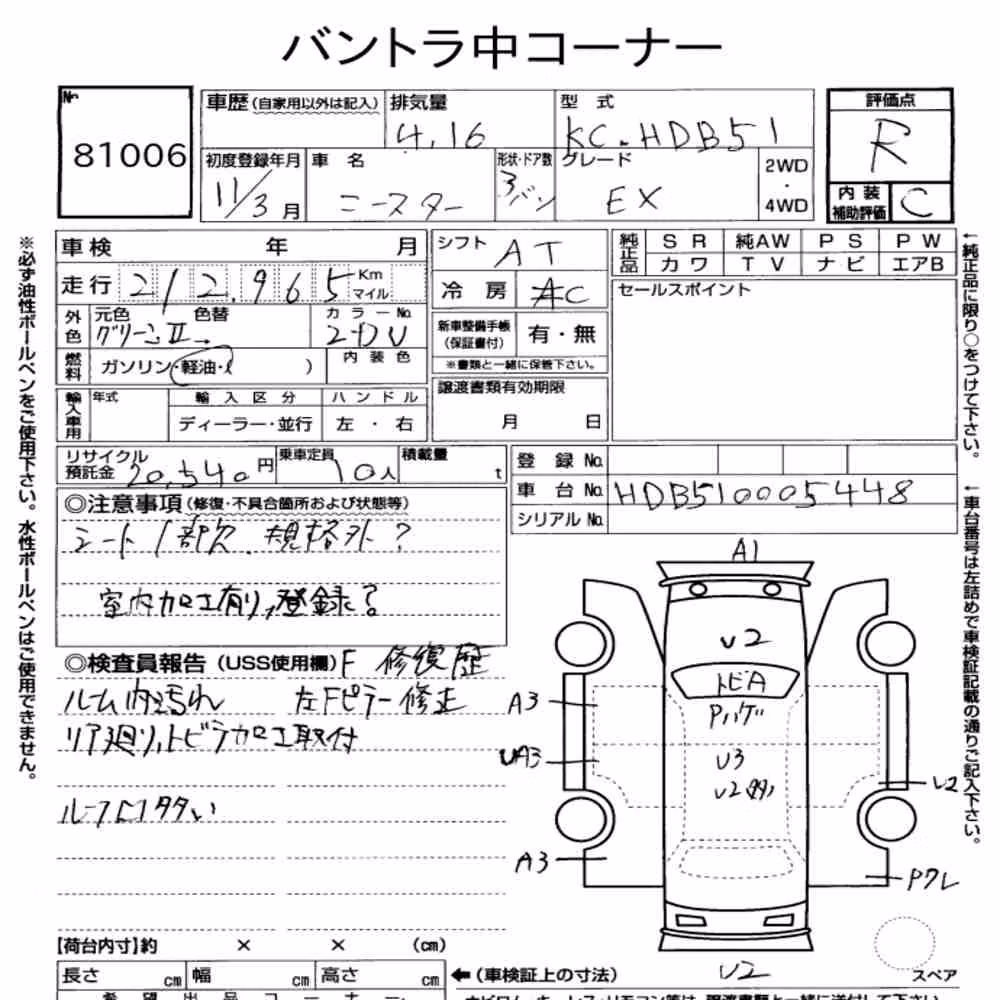 バントラ中コーナー
№ 81006
車歴(自家用以外は記入) 排気量 4.16 型式 KC.HDB51 評価点 R
初度登録年月 11/3月 車名 ニースター 形状・ドア数 3バン グレード EX 2WD・4WD 内装補助評価 C
車検 年 月 シフト AT 純正品 SR 純AW PS PW
カワ TV ナビ エアB
走行 212.965 Km マイル 冷房 AC セールスポイント
外色 元色 グリーンII 色替 カラーNo. 新車整備手帳(保証書付) 有・無
燃料 ガソリン・軽油・( ) 内装色 ※書類と一緒に保管下さい。
輸入車用 年式 輸入区分 ハンドル 譲渡書類有効期限
ディーラー・並行 左・右 月 日
リサイクル預託金 20,540円 乗車定員 10人 積載量 t 登録No.
車台No. HDB510005448
シリアルNo.
◎注意事項(修復・不具合箇所および状態等)
シート1部欠、規格外?
室内加工有り,登録?
◎検査員報告(USS使用欄)F 修復歴
ルーム内汚れ 左Fピラー修正
リア廻り,トビラ加工取付
A1
U2
トビA
Pハゲ
A3
UA3
U3
U2
U2
A3
Pワレ
U2
【荷台内寸】約 × × (cm)
スペア
長さ cm 幅 cm 高さ cm ←(車検証上の寸法)
※必ず油性ボールペンをご使用下さい。水性ボールペンはご使用できません。
←純正品に限り○をつけて下さい。
←車台番号は左詰めで車検証記載の通りご記入下さい。